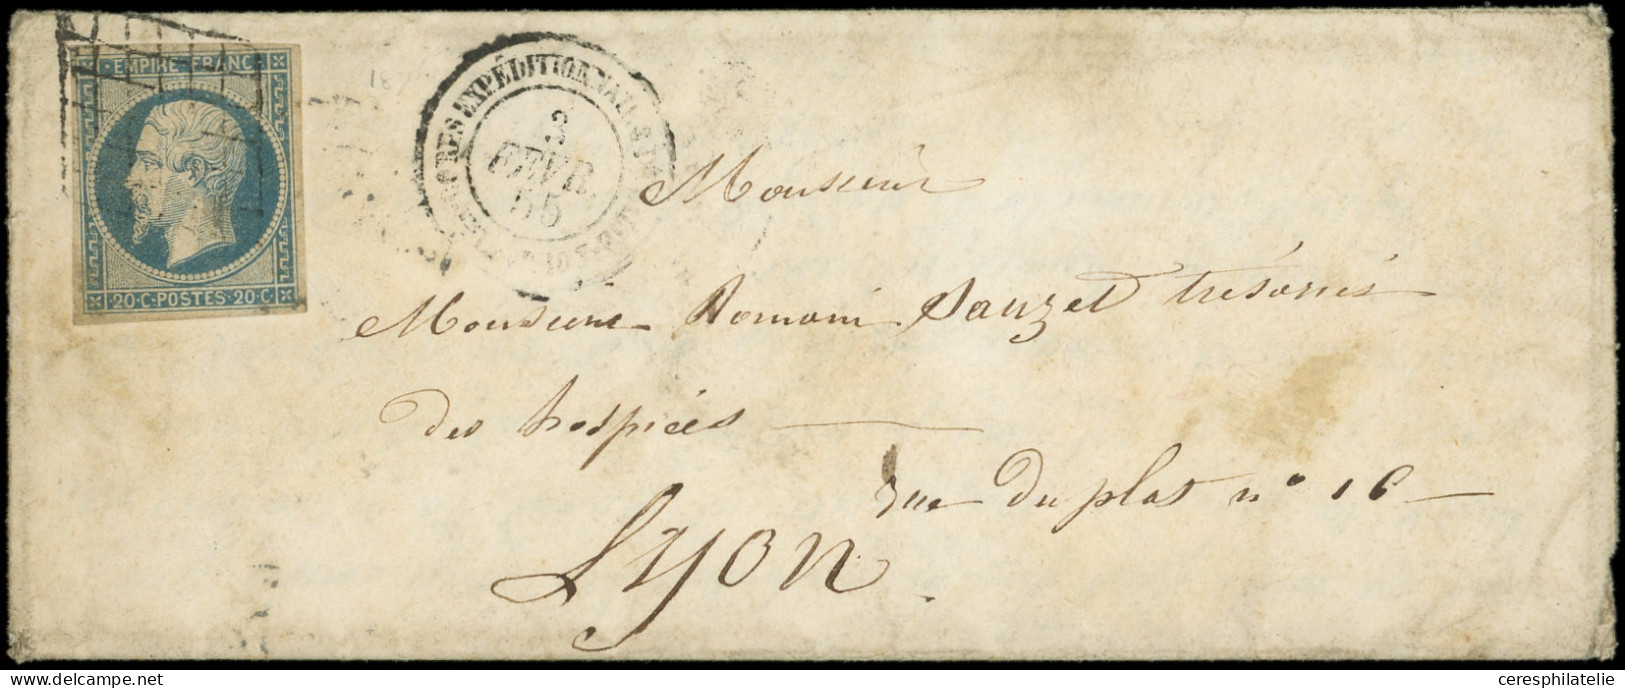 EMPIRE FRANC
20·C·POSTES·20·C
3
FEVR.
55
Monsieur
Monsieur Romain Sauzet trésorier
des hospices
rue du plat n° 16
Lyon
ceresphilatelie